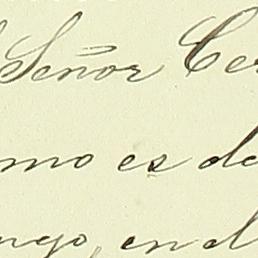 Señor Ce
mo es de
ngo, en d